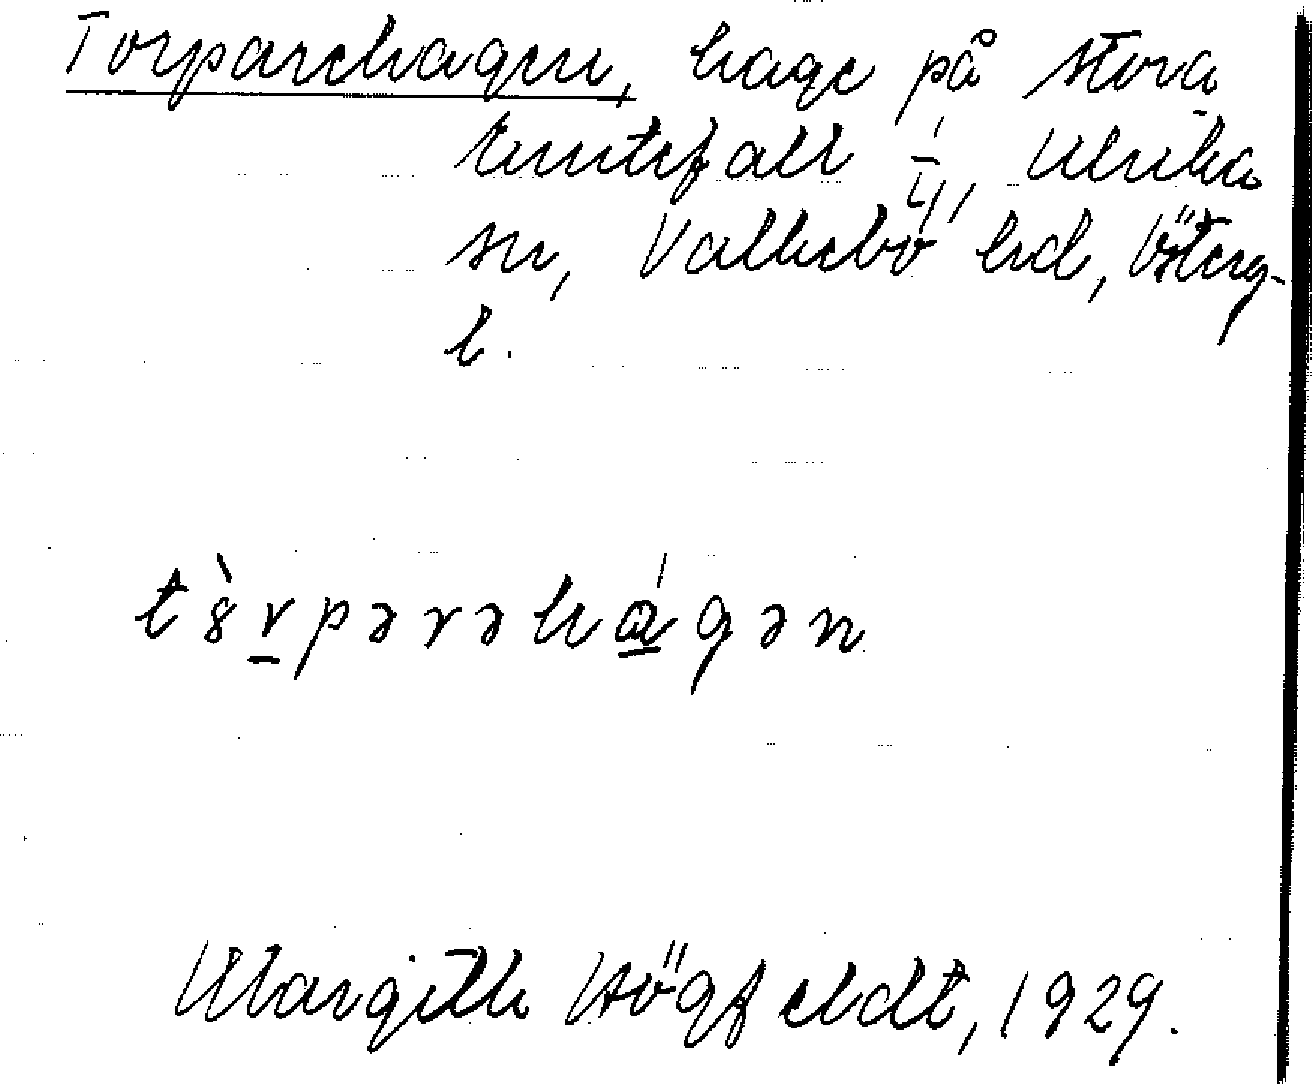 Torparehagen, hage på Stora
Runtefall 1/4, Ulrika
sn, Valkebo hd, Österg-
l.
Margith Högfeldt, 1929.